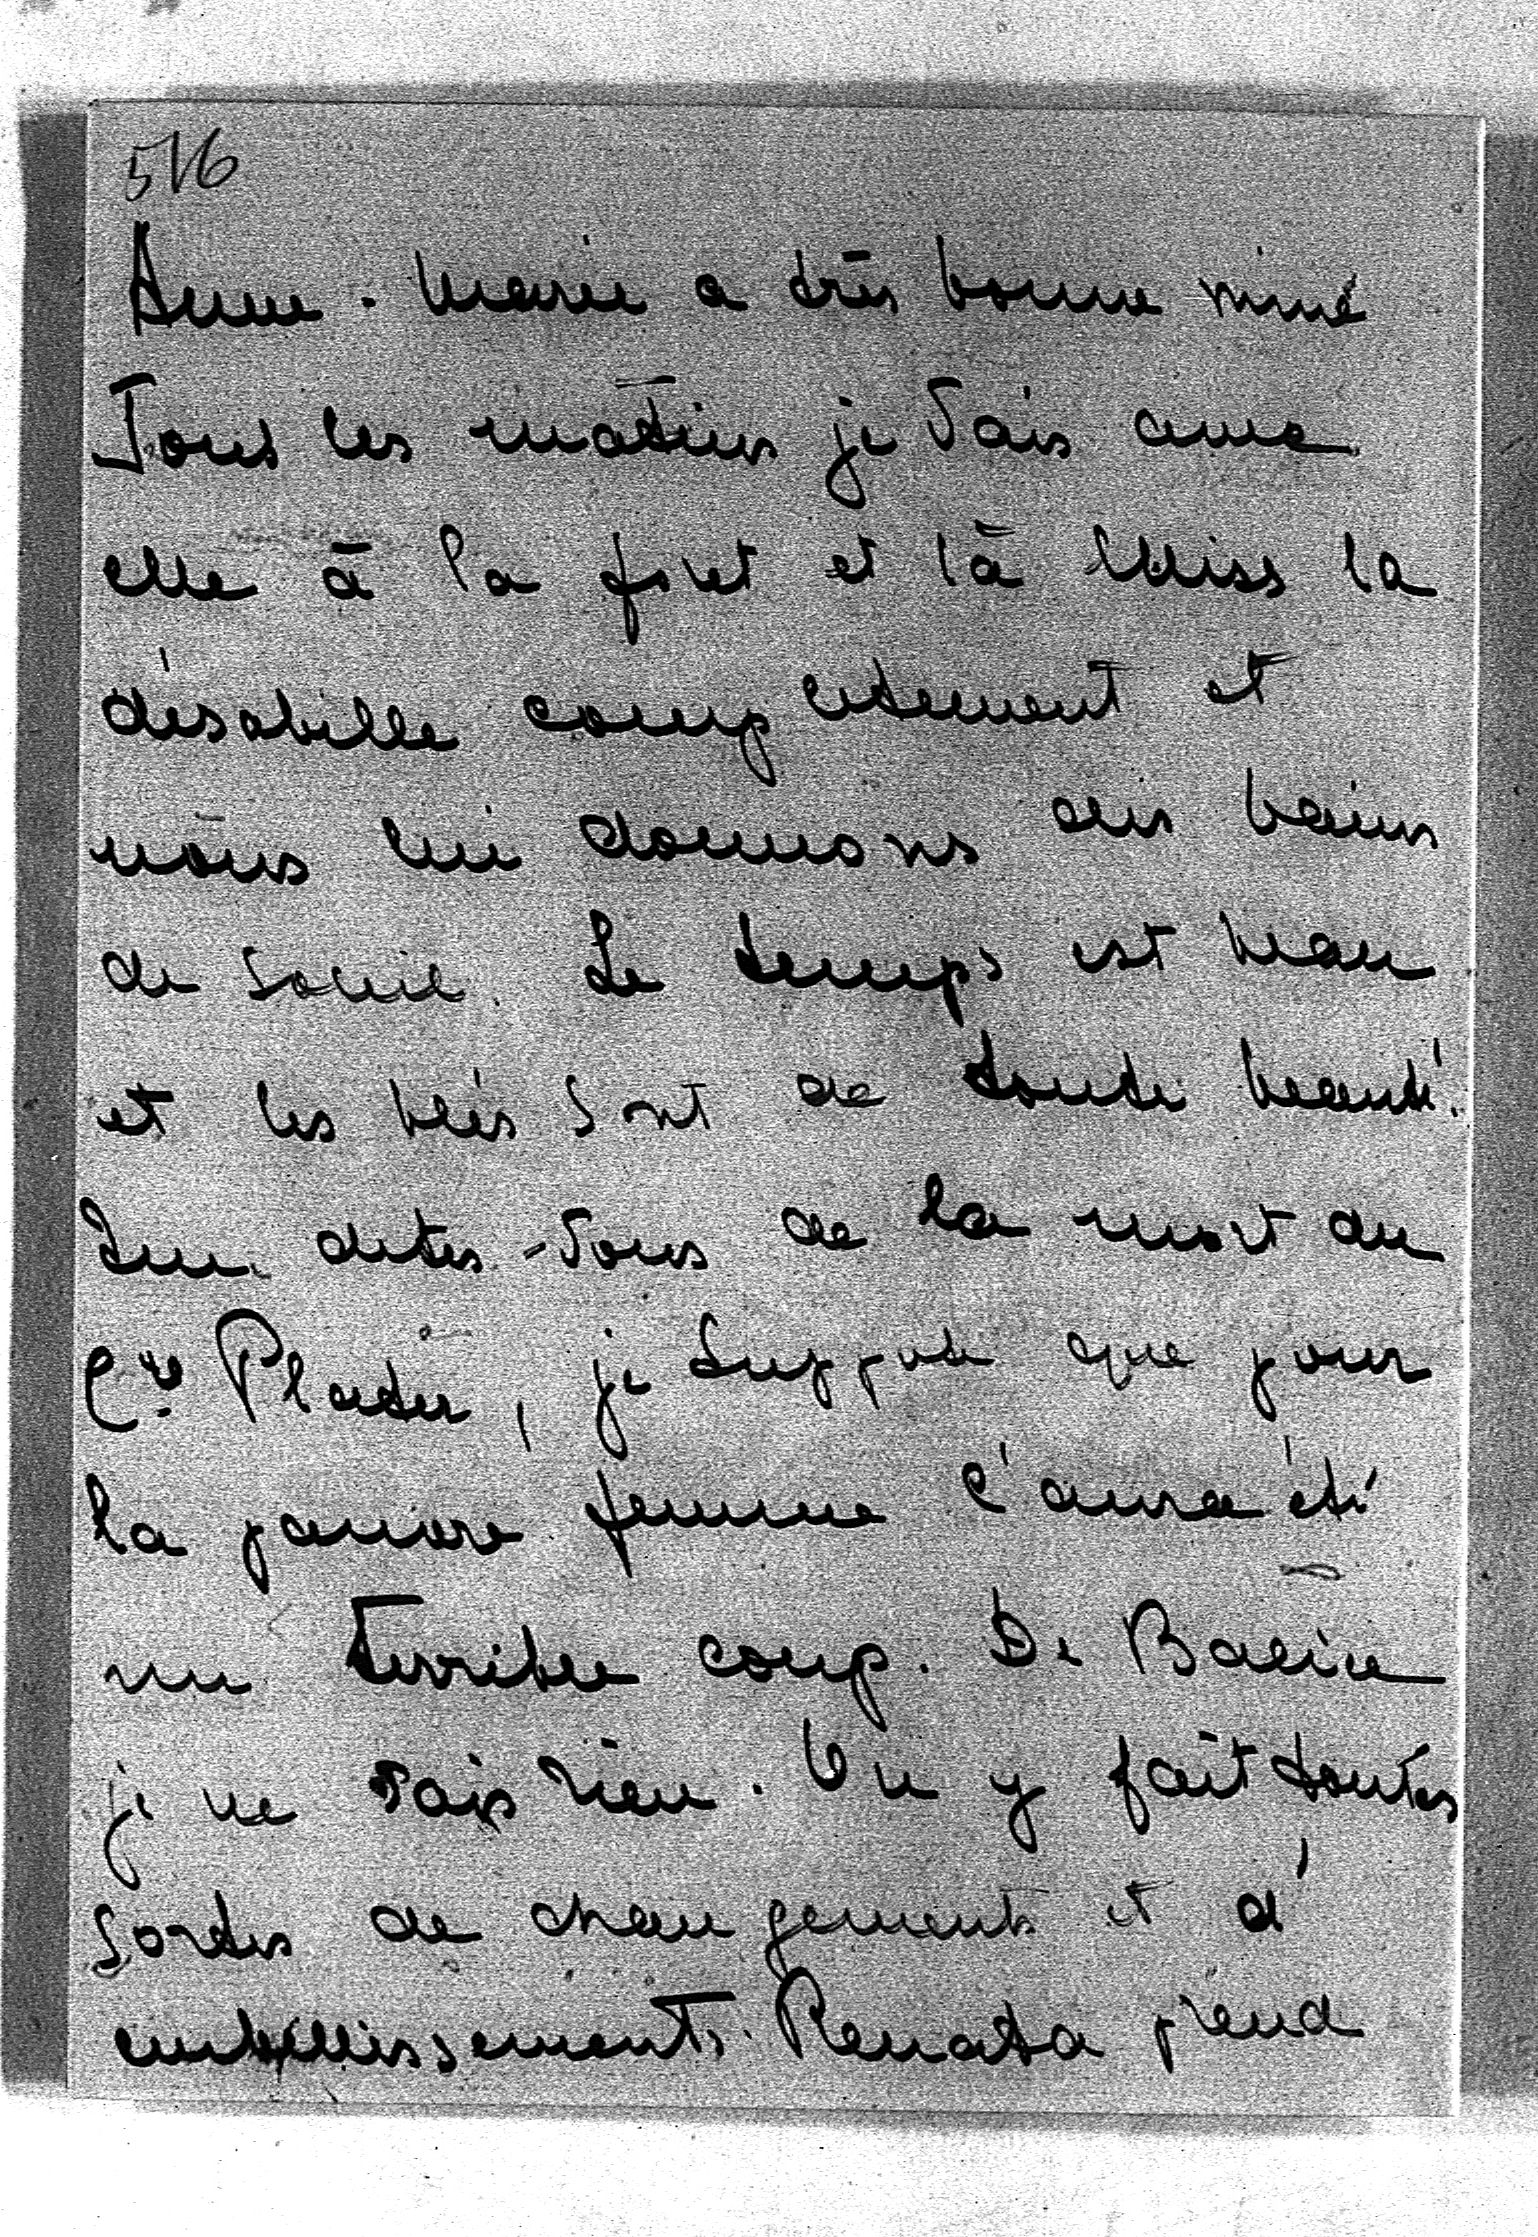 516
Anne-Marie a très bonne mine
Tous les matins je vais avec
elle à la foret et là Miss la
désabille completement et
nous lui donnons des bains
de soleil. Le temps est beau
et les blés sont de toute beauté.
Que dites-vous de la mort du
Cte Plater, je suppose que pour
la pauvre femme c'aura été
un terrible coup. De Balice
je ne sais rien. On y fait toutes
sortes de changements et d'
embellissements. Renata prend